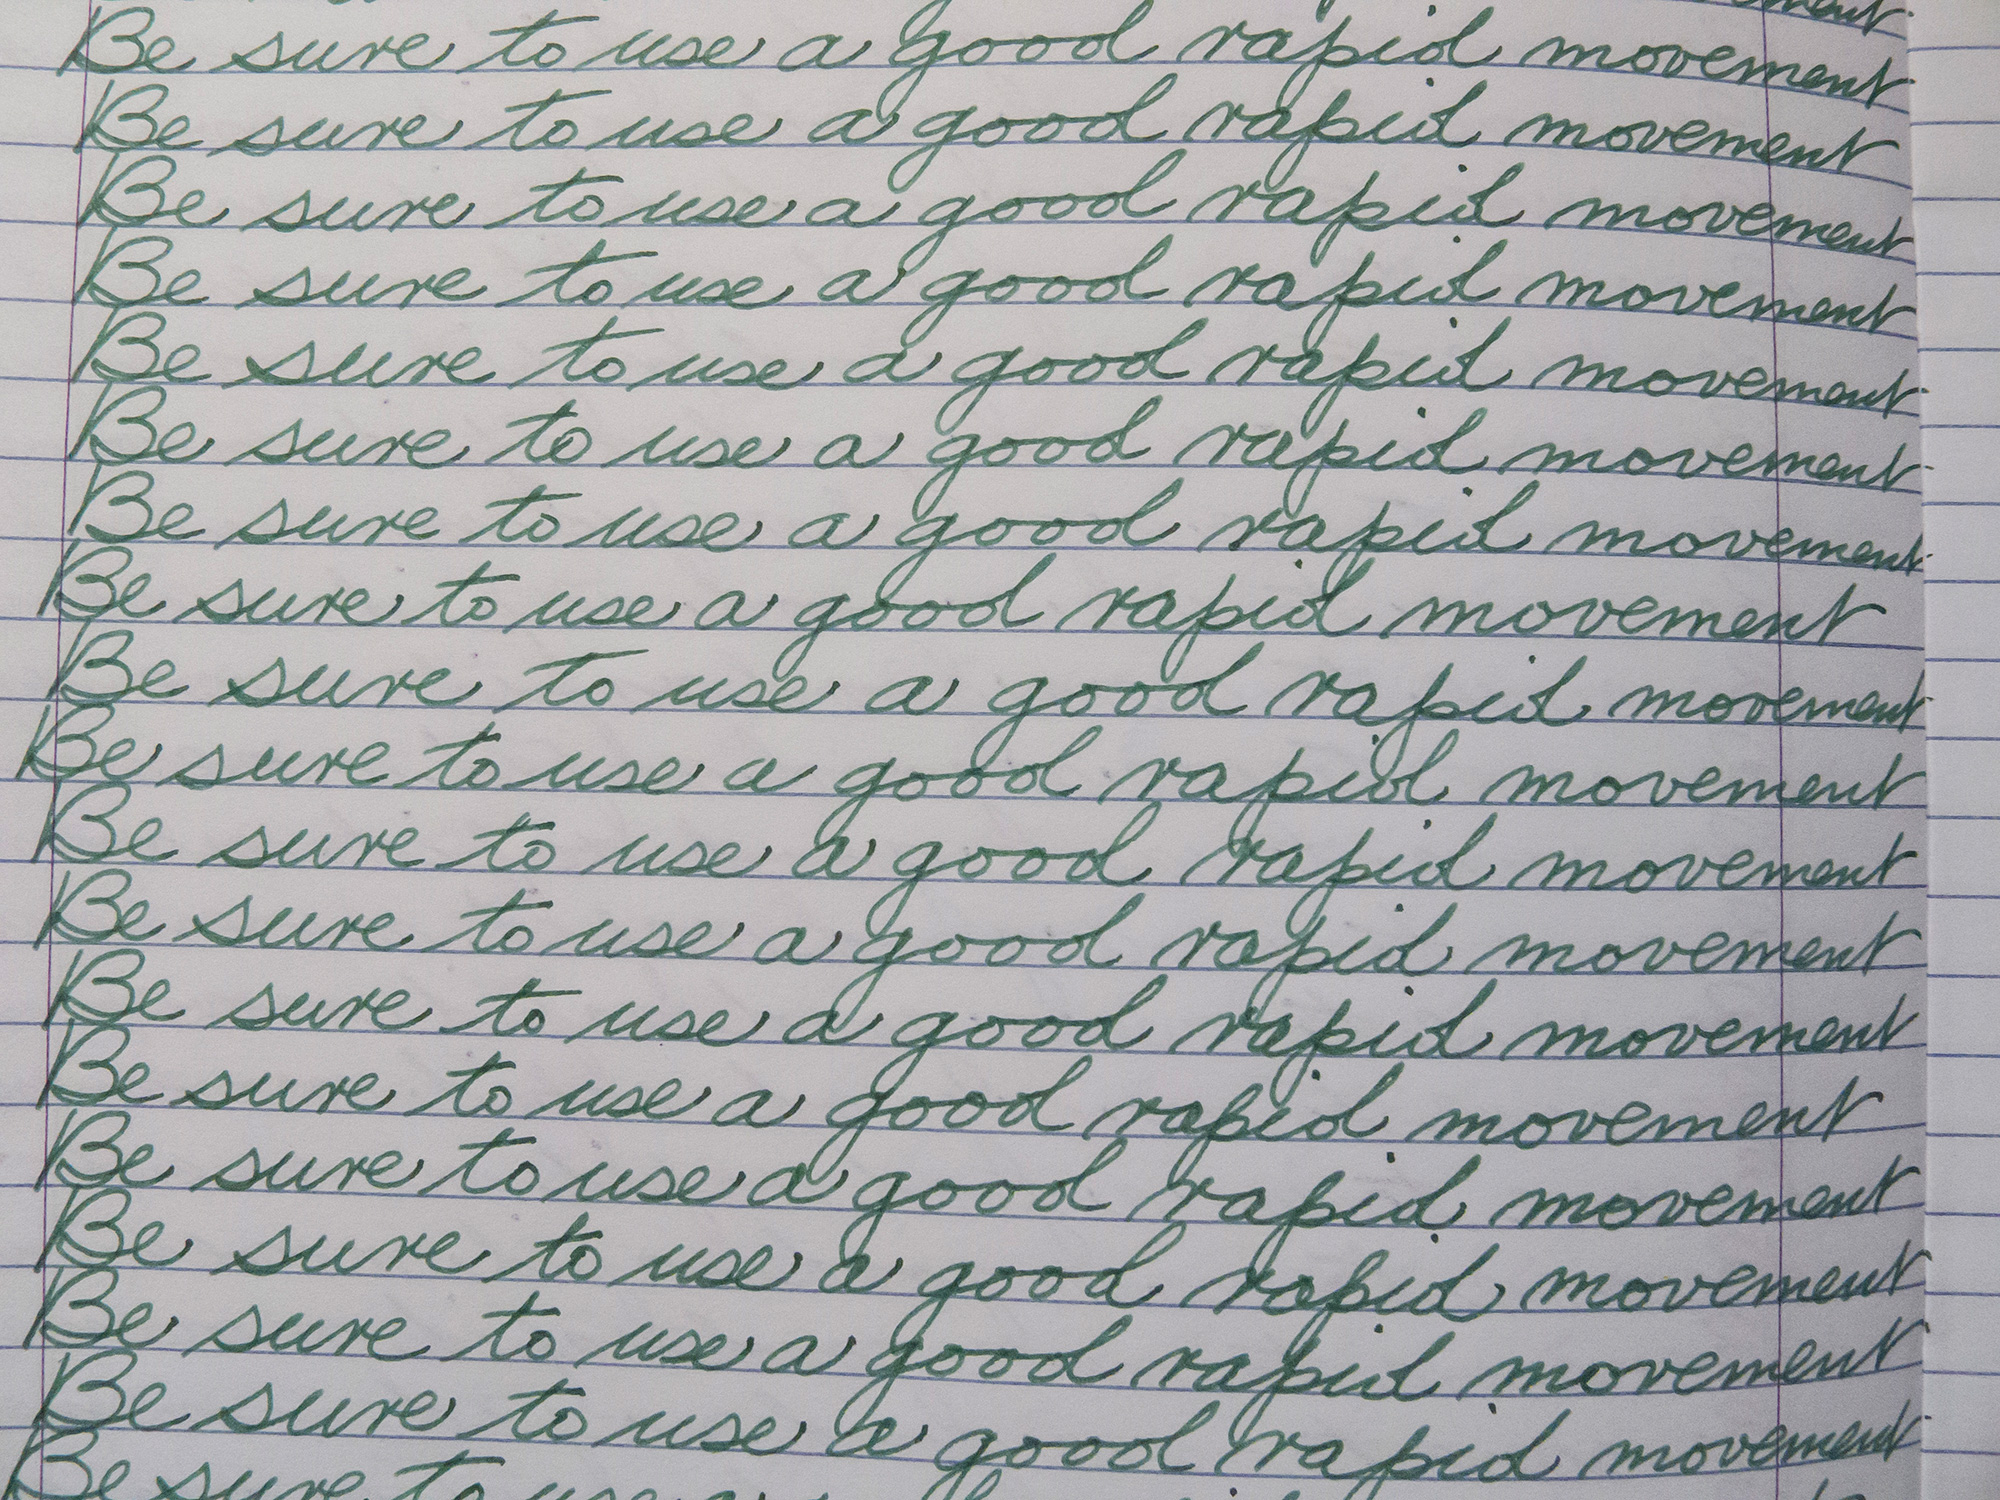 ment
Be sure to use a good rapid movement
Be sure to use a good rapid movement
Be sure to use a good rapid movement
Be sure to use a good rapid movement
Be sure to use a good rapid movement
Be sure to use a good rapid movement
Be sure to use a good rapid movement
Be sure to use a good rapid movement
Be sure to use a good rapid movement
Be sure to use a good rapid movement
Be sure to use a good rapid movement
Be sure to use a good rapid movement
Be sure to use a good rapid movement
Be sure to use a good rapid movement
Be sure to use a good rapid movement
Be sure to use a good rapid movement
Be sure to use a good rapid movement
Be sure to use a good rapid movement
Be sure to use